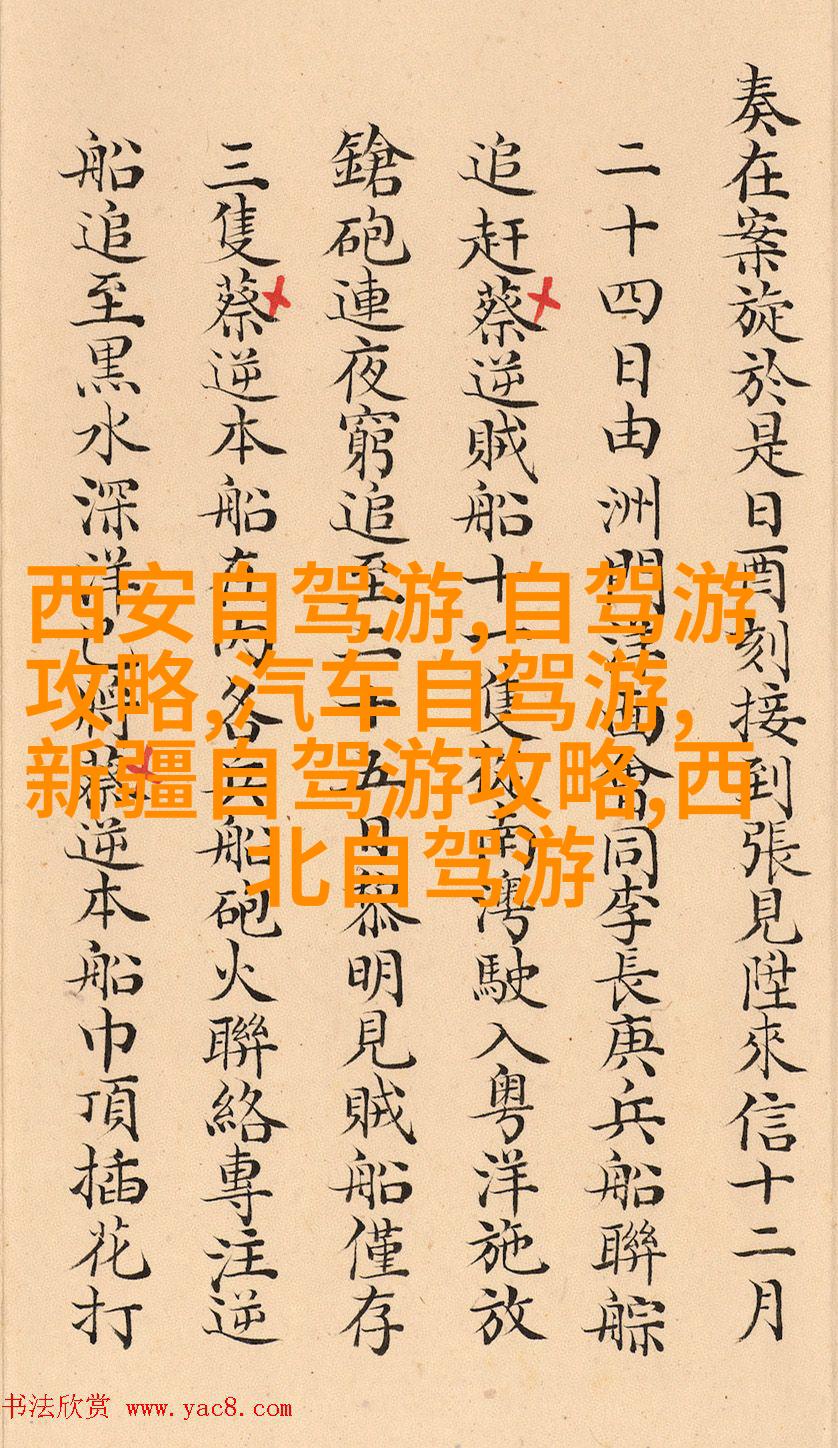 奏在案旋於是日酉刻接到張見陞來信十二月
二十四日由洲面會同李長庚兵船聯䑸
追赶蔡逆賊船十一隻南澳駛入粵洋施放
鎗砲連夜窮追至二十五日黎明見賊船僅存
三隻蔡逆本船在內各兵船砲火聯絡專注逆
船追至黑水深洋已將蔡逆本船巾頂插花打
西安自驾游,自驾游
攻略,汽车自驾游,
新疆自驾游攻略,西
北自驾游
书法欣赏 www.yac8.com